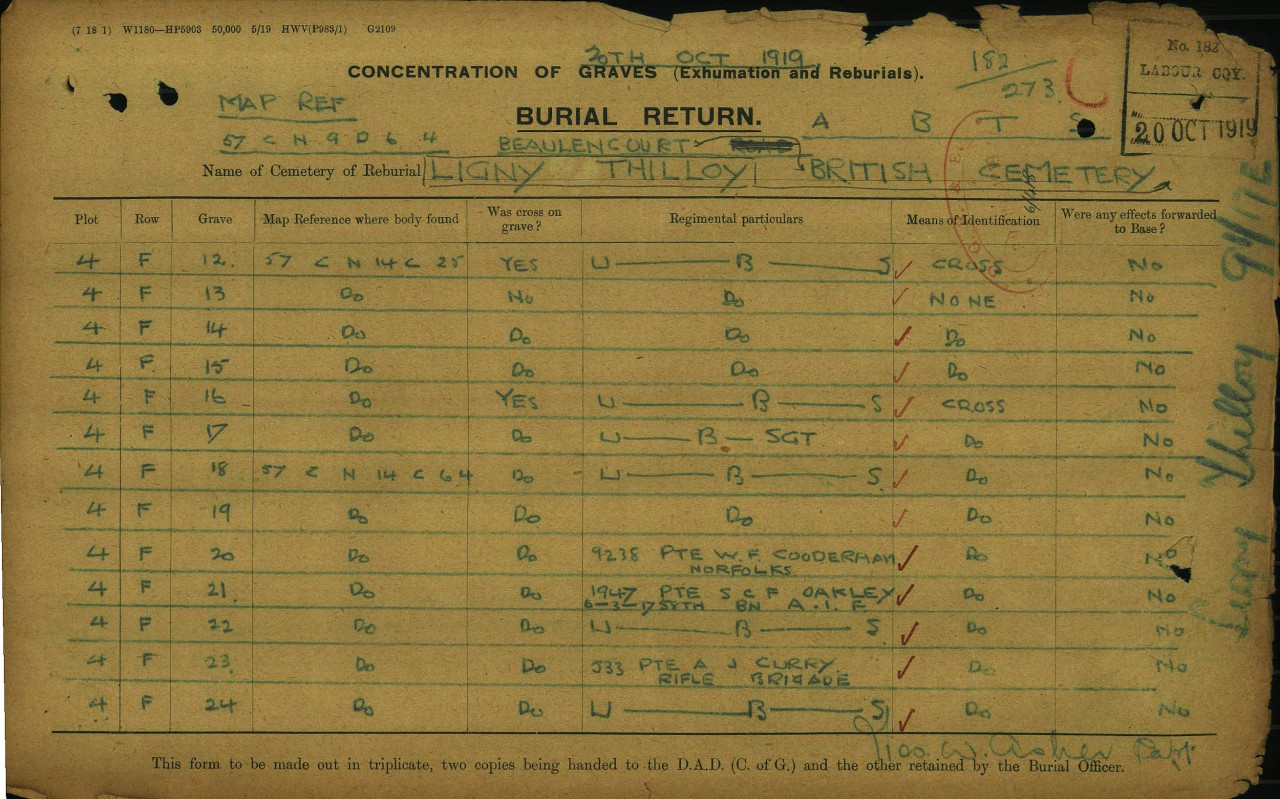 (7 18 1) W1180—HP5903 50,000 5/19 HWV(P983/1) G2109
20TH OCT 1919
CONCENTRATION OF GRAVES (Exhumation and Reburials).
182
273.
No. 182
LABOUR COY.
20 OCT 1919
MAP REF
57 C N 9 D 6 4
BURIAL RETURN.
A B T S
BEAULENCOURT
Name of Cemetery of Reburial LIGNY THILLOY BRITISH CEMETERY
Plot Row Grave Map Reference where body found Was cross on grave? Regimental particulars Means of Identification Were any effects forwarded to Base?
4 F 12. 57 C N 14 C 25 YES U——B——S CROSS No
4 F 13 Do No Do NONE No
4 F 14 Do Do Do Do No
4 F. 15 Do Do Do Do No
4 F 16 Do YES U——B——S CROSS No
4 F 17 Do Do U——B—SGT Do No
4 F 18 57 C N 14 C 64 Do U——B——S. Do No
4 F 19 Do Do Do Do No
4 F 20 Do Do 9238 PTE W. F. COODERHAM Do No
NORFOLKS
4 F 21. Do Do 1947 PTE S C F OAKLEY Do No
6-3-17 58TH BN A.I.F.
4 F 22 Do Do U——B——S. Do No
4 F 23. Do Do 533 PTE A J CURRY. Do No
RIFLE BRIGADE
4 F 24 Do Do U——B——S Do No
This form to be made out in triplicate, two copies being handed to the D.A.D. (C. of G.) and the other retained by the Burial Officer.
Ligny Thilloy